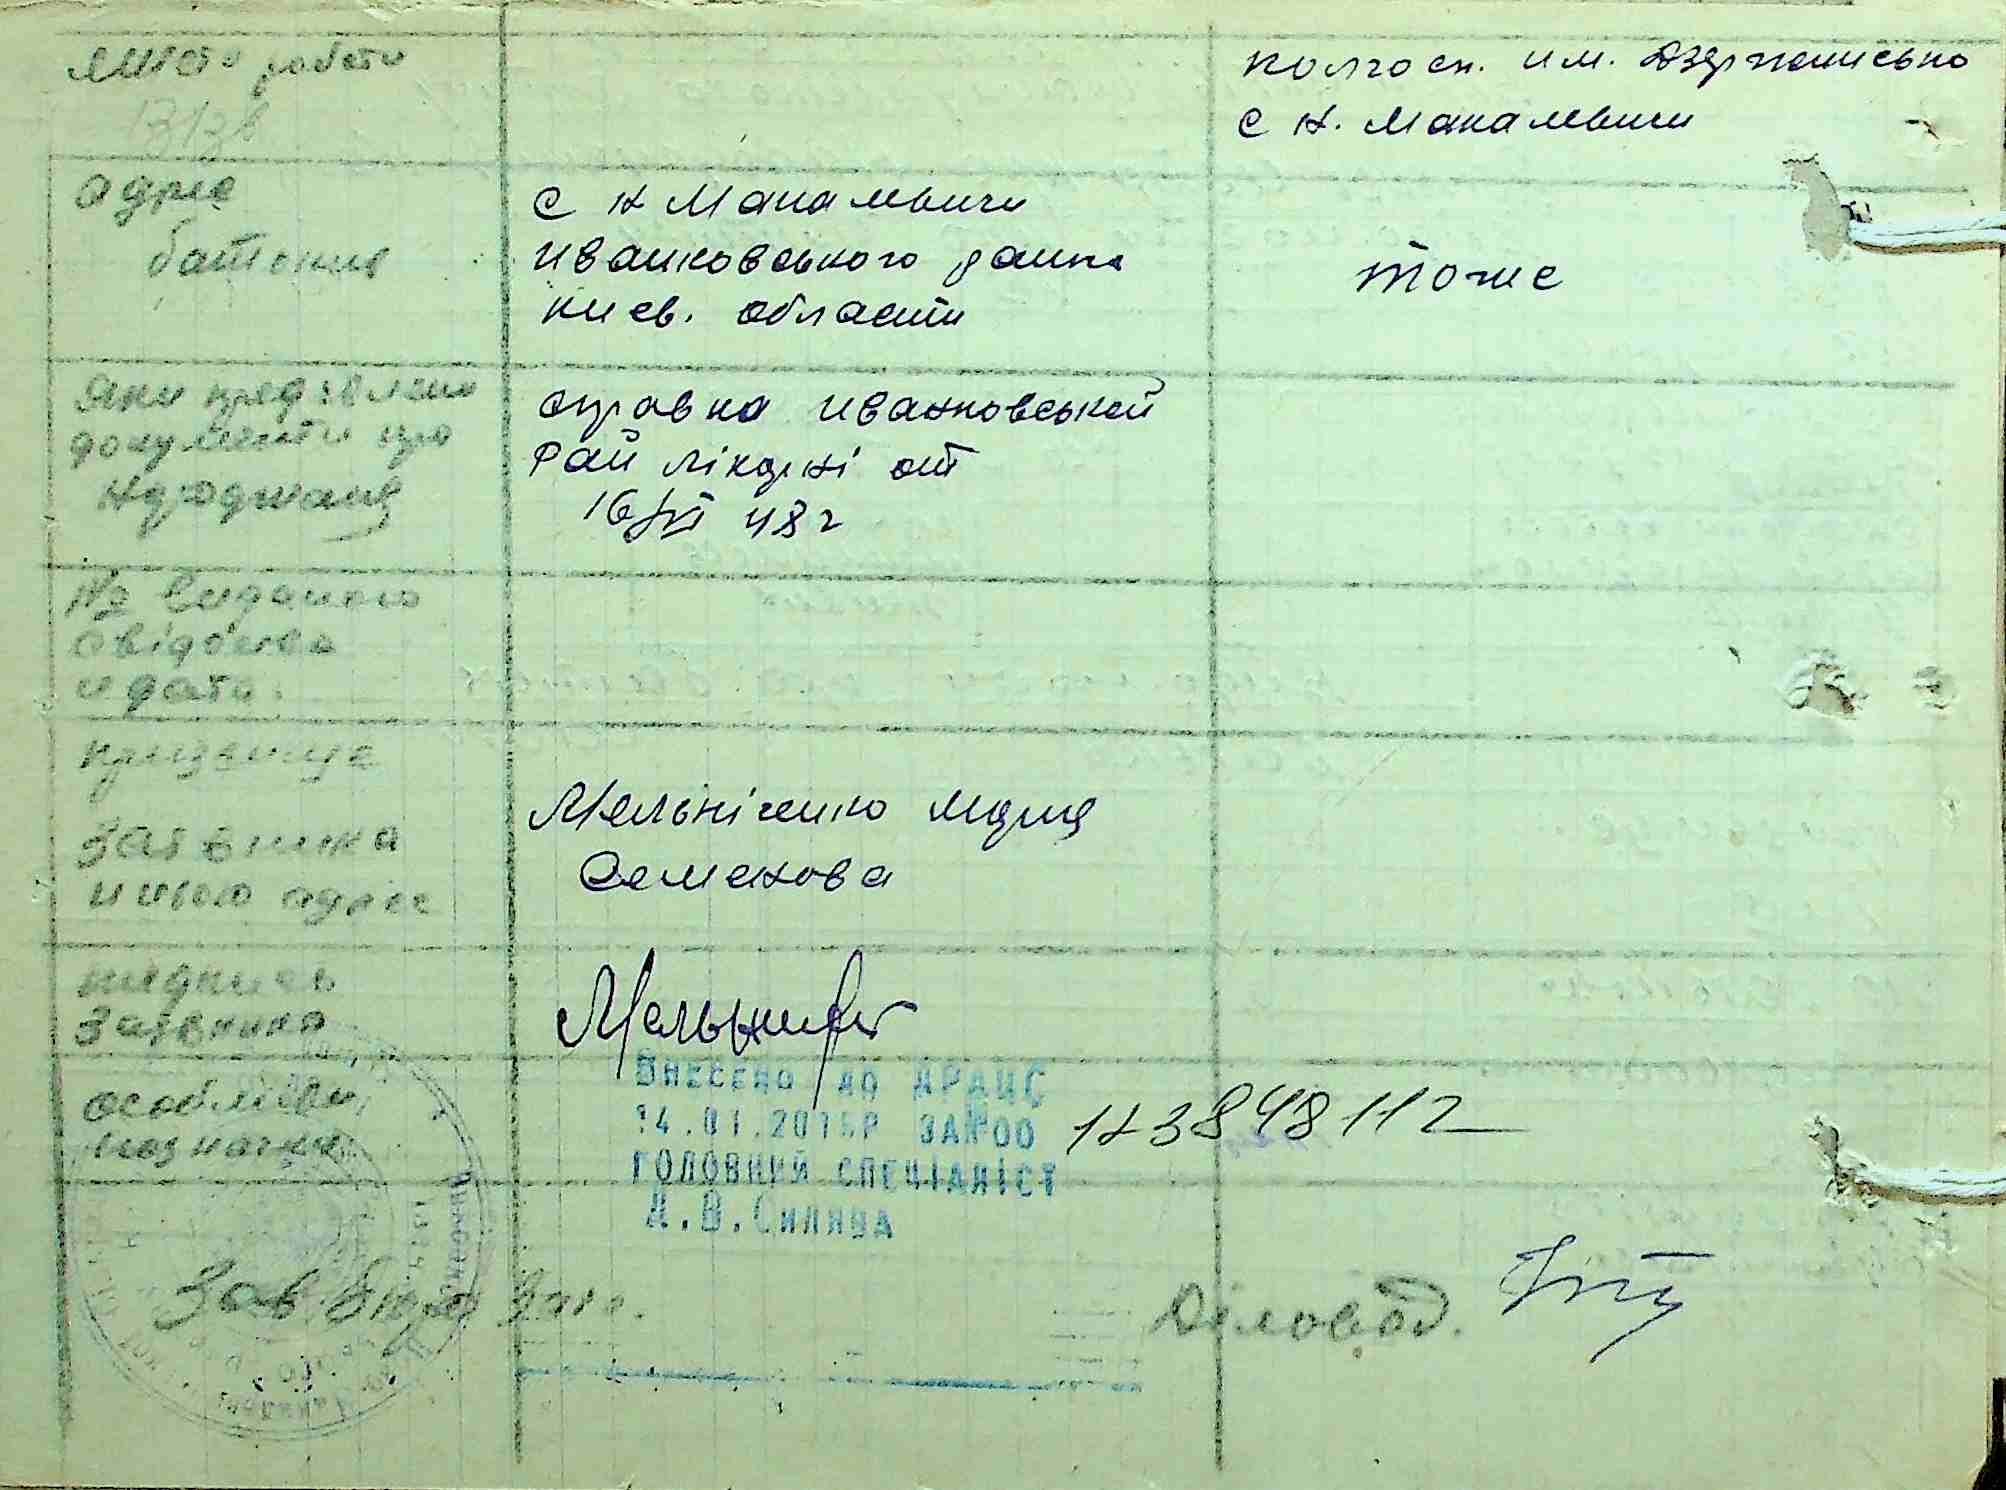 місто роботи
колгосп. им. Дзержинсько
с Н. Макалевичи
Адрес
батьків
с Н Макалевичи
Иванковського району
Киев. области
тоже
Яки предявлени
документи про
народжения
справка иванковськой
Рай лікарні от
16/VI 48 г
№ виданого
свідоства
и дата.
призвище
заявника
и його адрес
Мельніченко Марія
Семенова
підпись
Заявника
Особливи,
позначки
ВНЕСЕНО ДО ДРАЦС
14.01.201 Р ЗА №00 123848112
ГОЛОВНИЙ СПЕЦІАЛІСТ
Зав Бюро Загс.
Діловод.